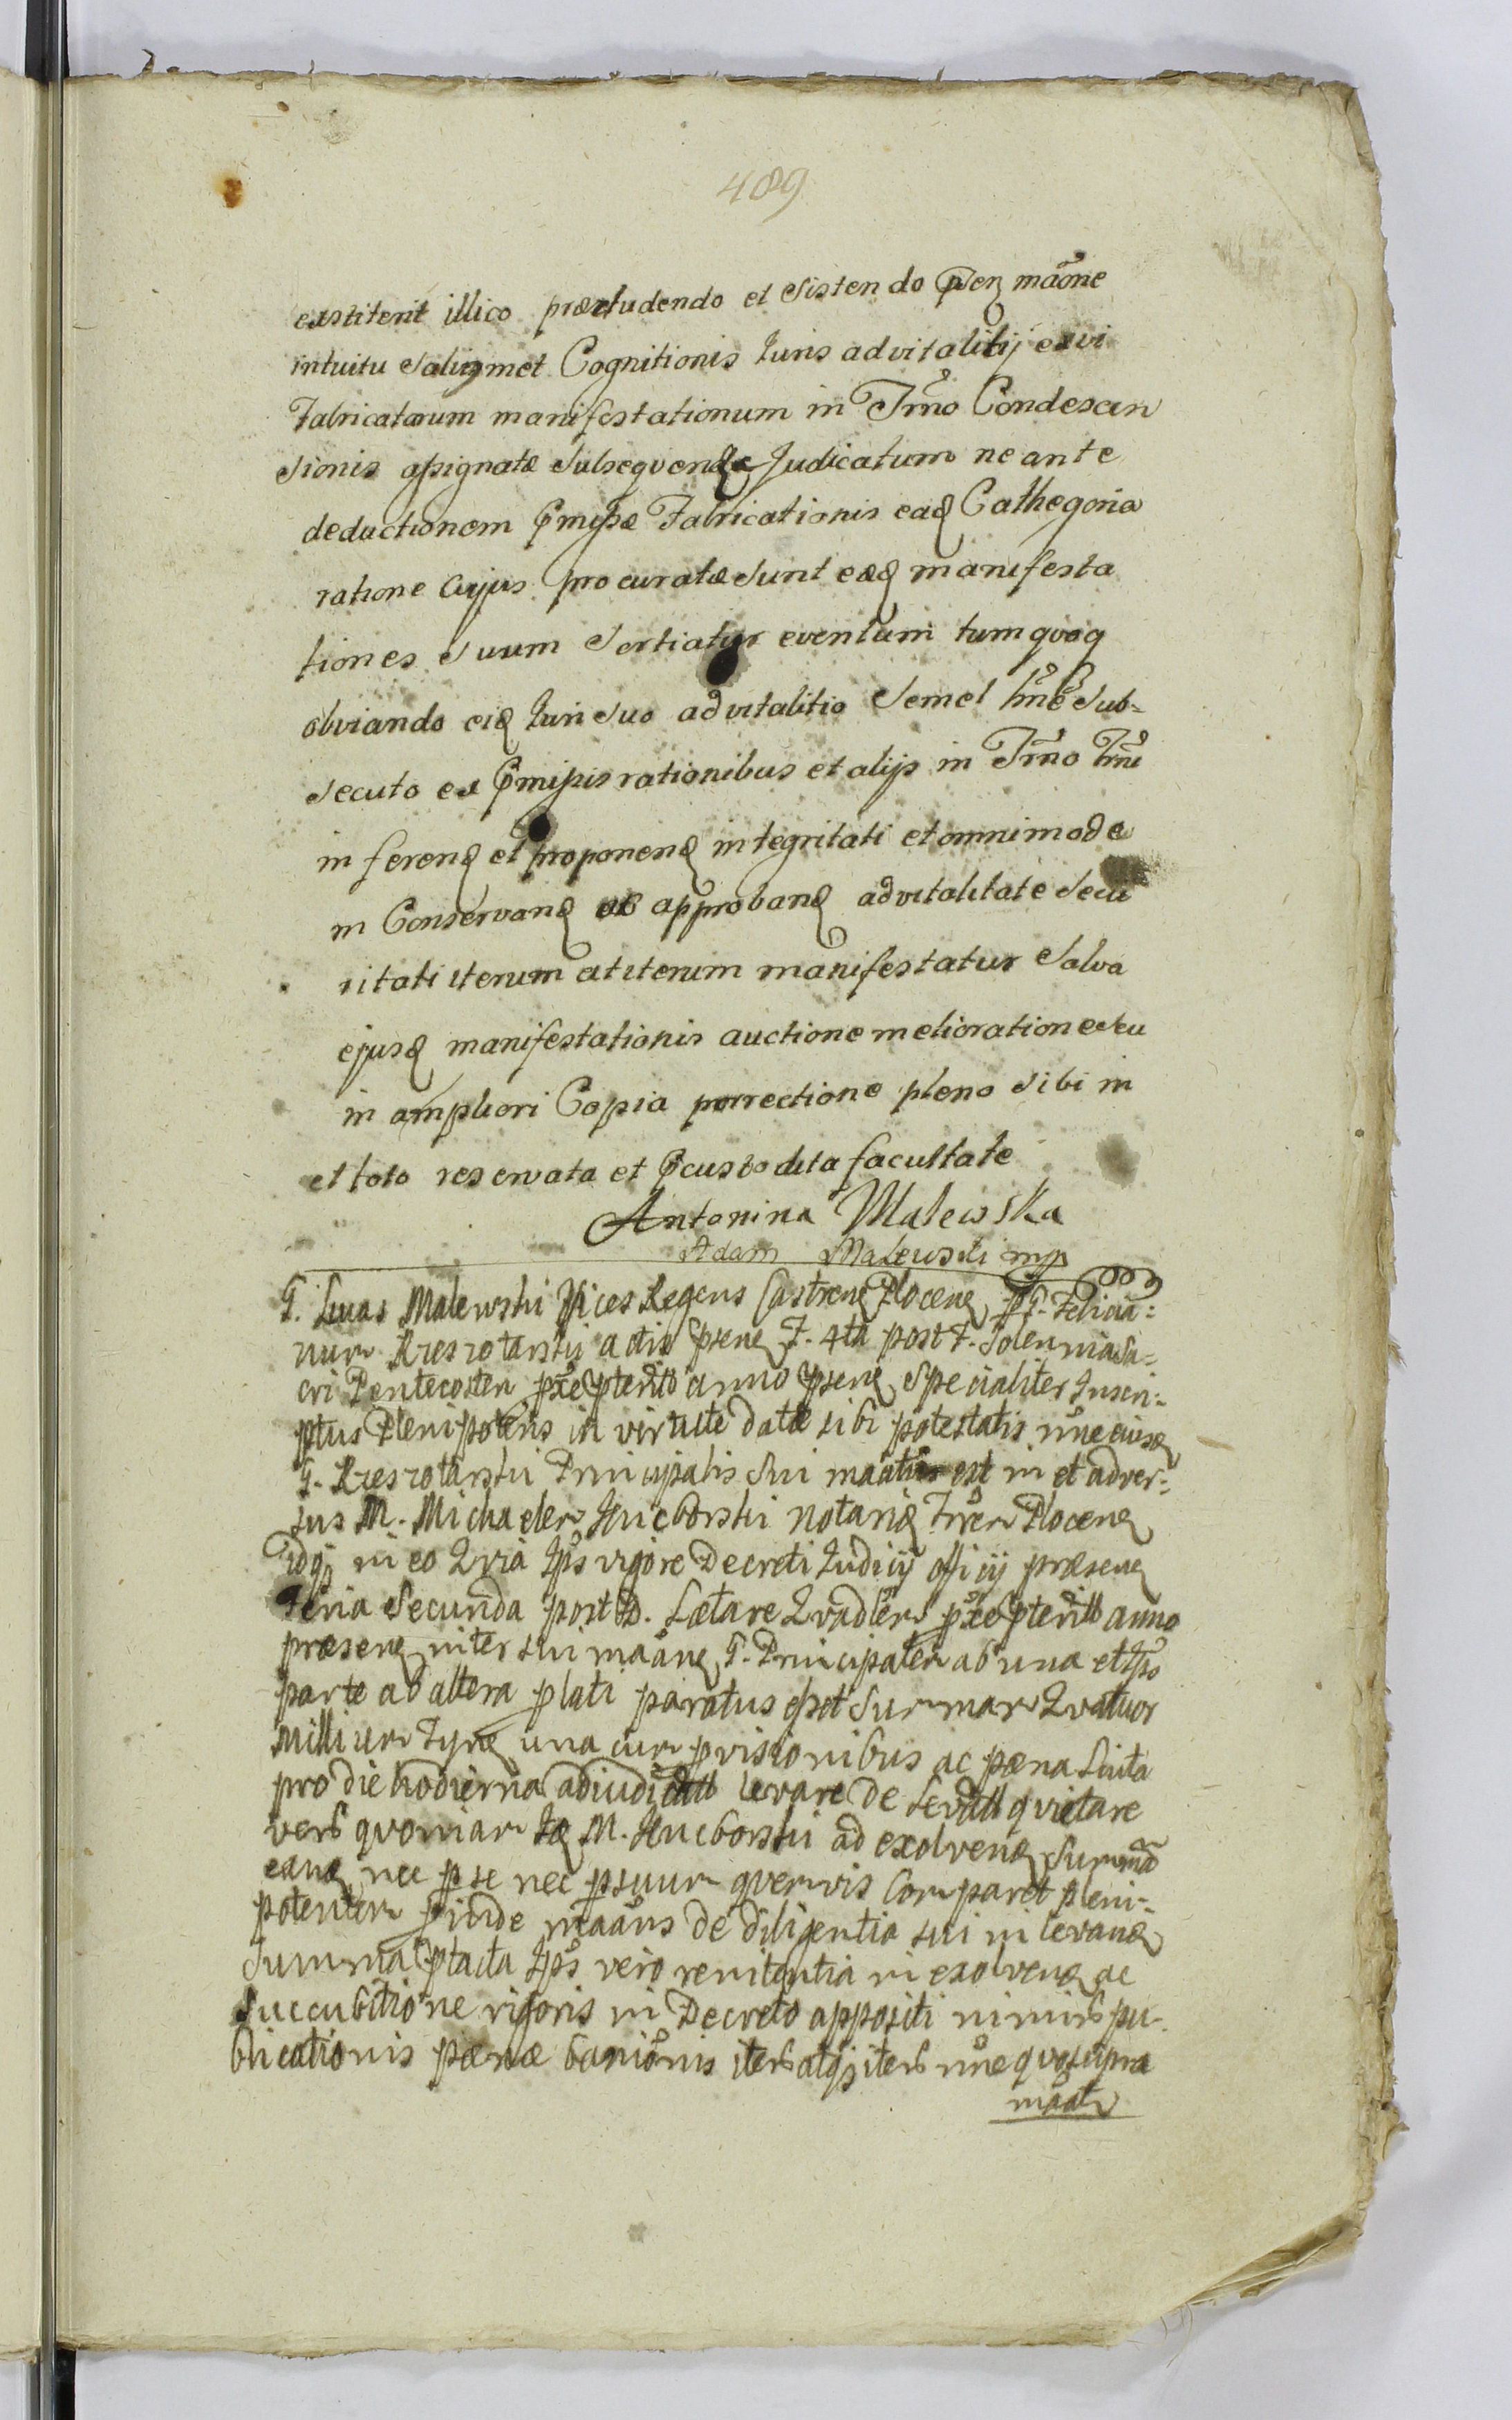 489
exstiterit illico præcludendo et sistendo psen mãone
intuitu salugmet Cognitionis Iuris advitalitij ex vi
Fabricatarum manifestationum in Trño Condescen
sionis assignatæ subsequendæ Judicatum ne ante
deductionem pmissæ Fabricationis ead Cathegoria
ratione cujus procuratæ sunt eæd manifesta
tiones suum sortiatur eventum tum quoq
obviando eid Iuri suo advitalitio semel sub=
secuto ex pmissis rationibus et alijs in Trño
inferend et proponend integritati et omnimodæ
in Conservand ac approband advitalitate secu
ritati iterum atiterum manifestatur salva
ejusd manifestationis auctione melioratione seu
in ampliori Copia porrectione pleno sibi in
et toto reservata et pcustodita facultate
Antonina Malewska
Adam Malewski mp
G. Lucas Malewski Vices Regens Castren Plocen G. Felicia=
num actis psen F. 4ta post F. Solennia Sa=
cri Pentecosten pxe pterito anno psen Specialiter Inscri=
ptus Plenipotens in virtute datæ sibi potestatis nõne eiusd
G. Principalis sui mãatus est in et adver=
sus M. Michaelem notariũ Trrem Plocen
Idq in eo Qvia Ips vigore Decreti Iudicij officij præsen
Feria Secunda post D. Lætare Qvadlem pxe pterito anno
præsen inter sui mãan G. Principalem ab una et Ipo
parte ab altera plati paratus esset Summam Qvatuor
Millium Tyn una cum pvisionibus ac pæna
pro die hodierna adiudicata levare de levatis quietare
vero quoniam Id M. ad exolvend Summã
eand nec p se nec psuum quemvis Comparet pleni=
potentem pinde mãans de diligentia sui in levand
Summa ptacta Ips vero renitentia in exolvend ac
succubitione rigoris in Decreto appositi nimirũ pu=
blicationis pænæ banionis iterũ atq iterũ nõne quo supra
mãatr